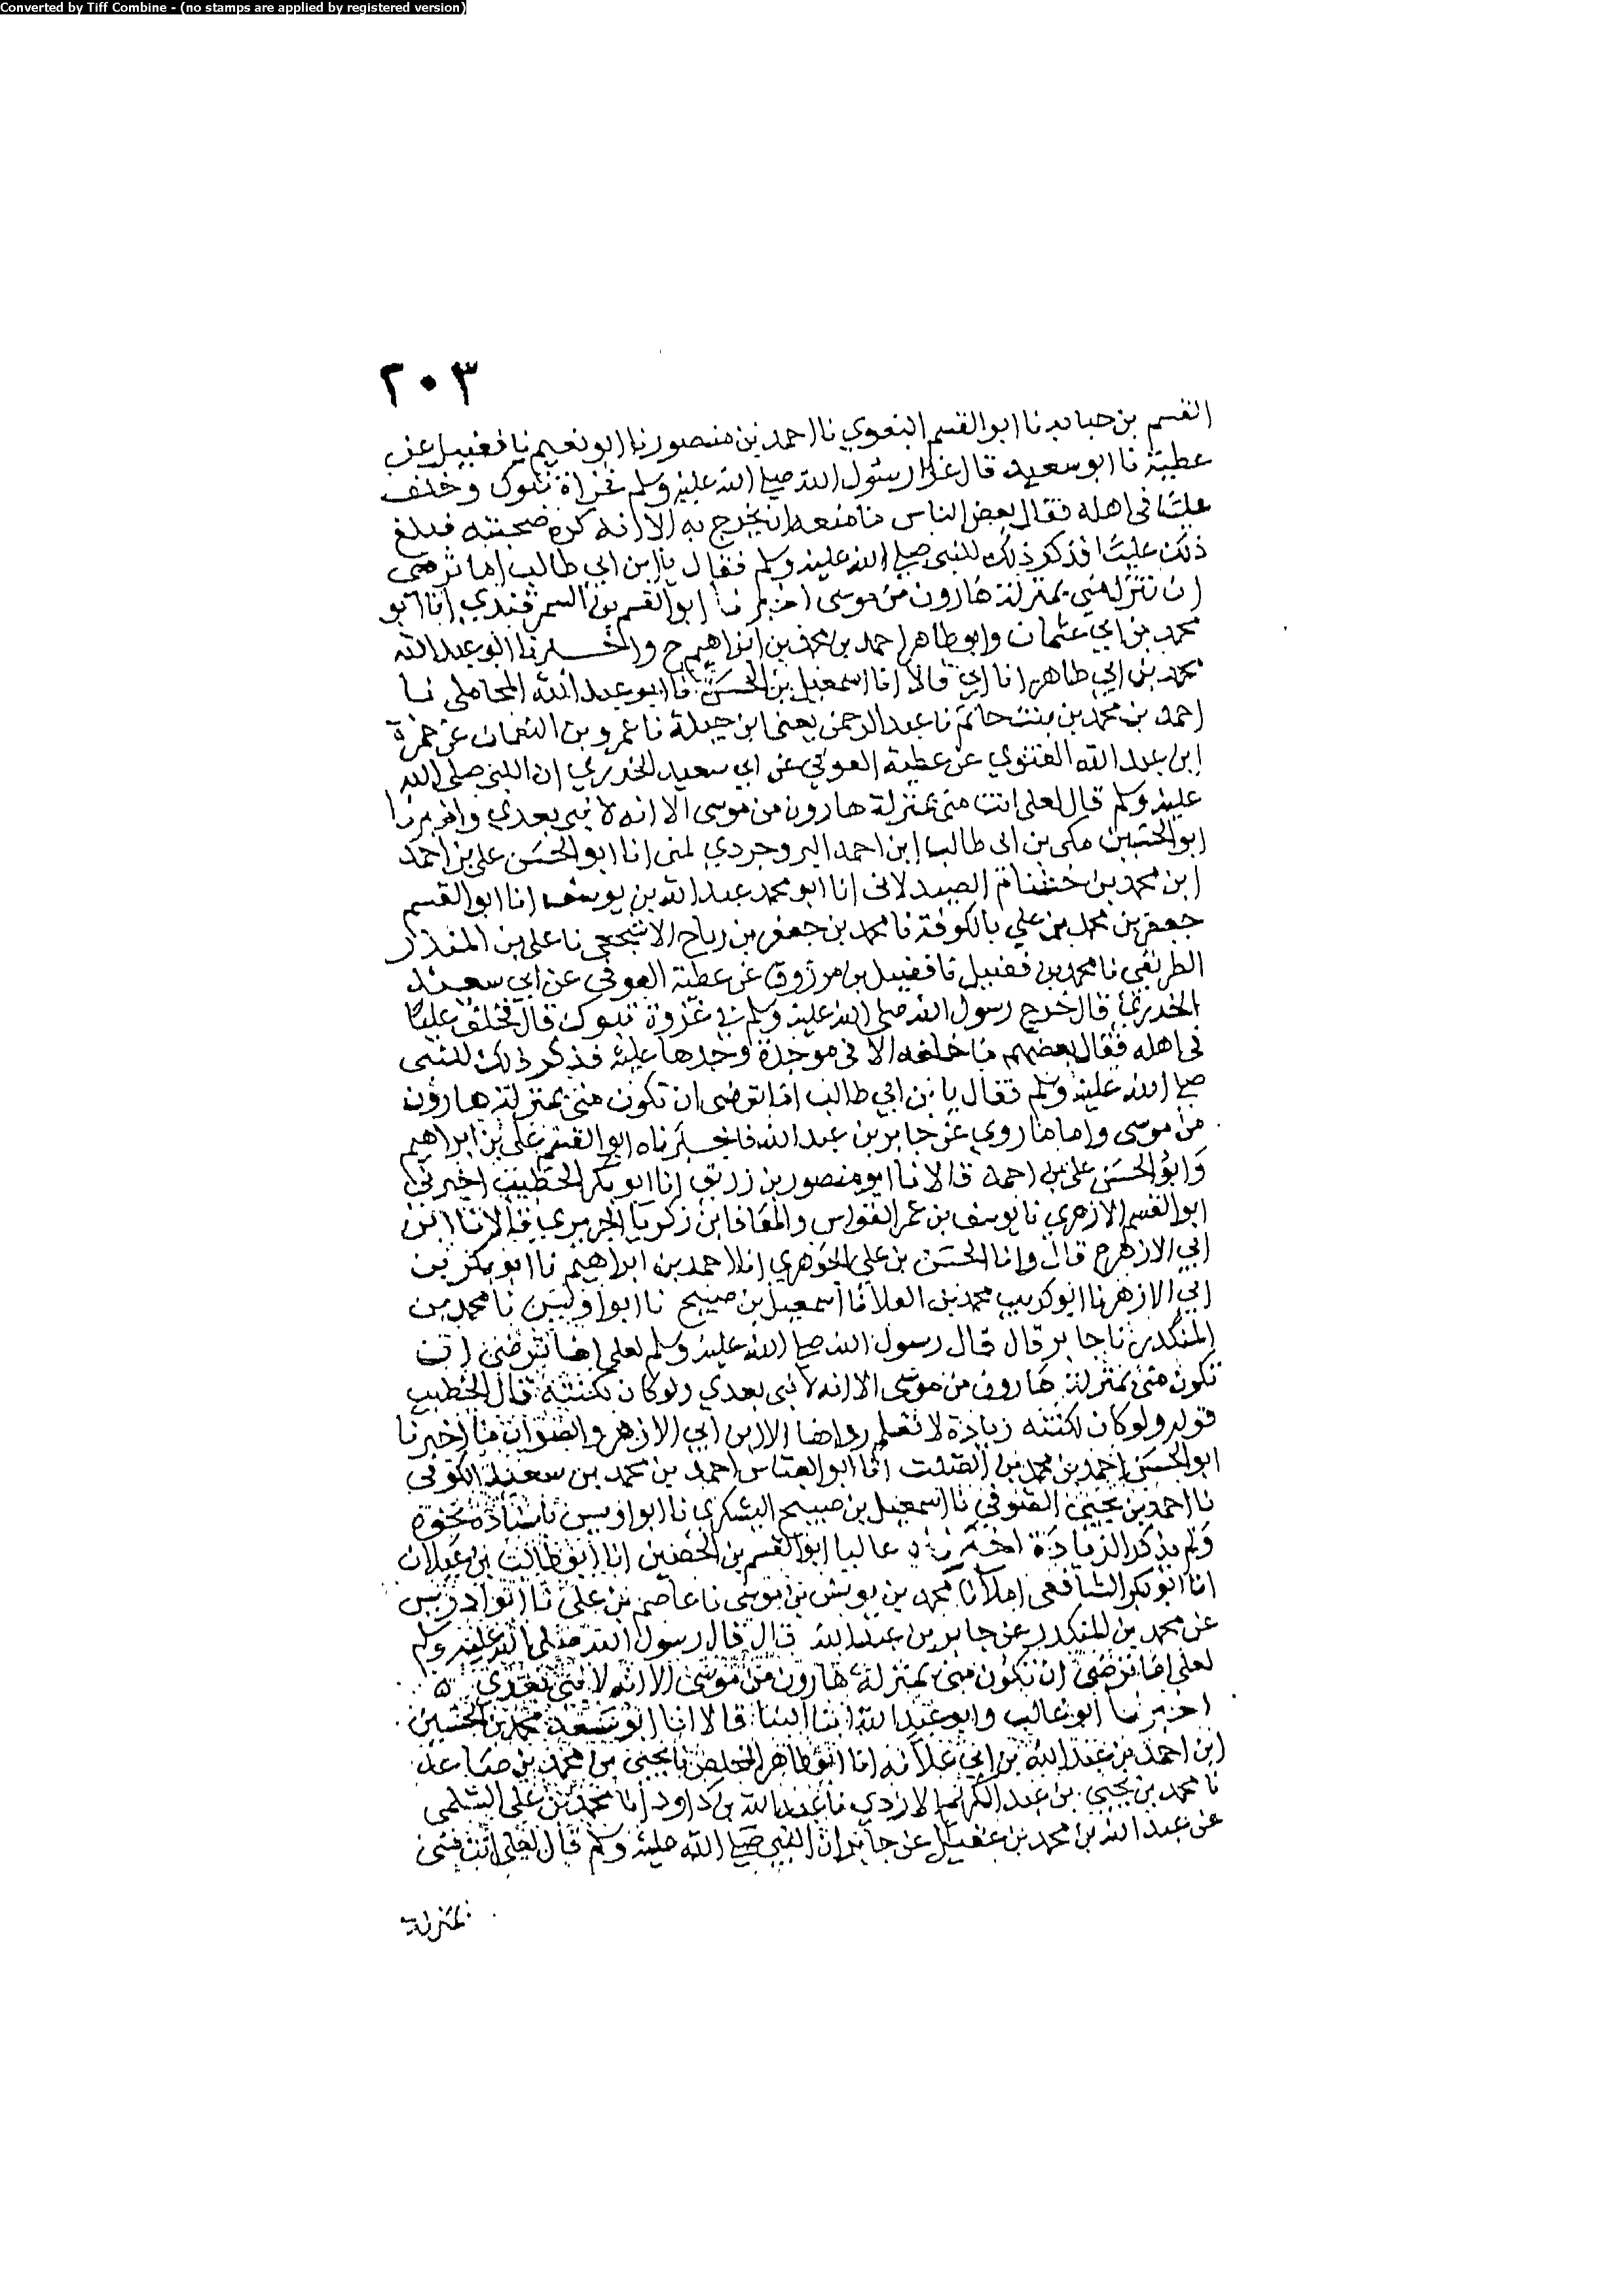 Converted by Tiff Combine - (no stamps are applied by registered version)
٢٠٣
القسم بن حبابه نا ابو القسم البغوي نا احمد بن منصور نا ابو نعيم نا فضيل عن
عطية نا ابو سعيد قال غزا رسول الله صلى الله عليه وسلم غزاة تبوك وخلف
عليًا في اهله فقال بعض الناس ما منعه ان يخرج به الا انه كره صحبته فبلغ
ذلك عليًا فذكر ذلك للنبي صلى الله عليه وسلم فقال يا ابن ابي طالب اما ترضى
ان تنزل مني بمنزلة هارون من موسى اخبرنا ابو القسم بن السمرقندي انا ابو
محمد بن ابي عثمان وابو طاهر احمد بن محمد بن ابراهيم ح واخبرنا ابو عبد الله
محمد بن ابي طاهر انا ابي قالا انا اسمعيل بن الحسن نا ابو عبد الله المحاملي نا
احمد بن محمد بن بنت حاتم نا عبد الرحمن يعني ابن جبلة نا عمرو بن النعمان عن حمزة
ابن عبد الله الغنوي عن عطية العوفي عن ابي سعيد الخدري ان النبي صلى الله
عليه وسلم قال لعلي انت مني بمنزلة هارون من موسى الا انه لا نبي بعدي واخبرنا
ابو الحسين مكي بن ابي طالب ابن احمد البروجردي لمنى انا ابو الحسن علي بن احمد
ابن محمد بن خشنام الصيدلاني انا ابو محمد عبد الله بن يوسف انا ابو القسم
جعفر بن محمد بن علي بالكوفة نا محمد بن جعفر بن رباح الاشجعي نا علي بن المنذر
الطريقي نا محمد بن فضيل نا فضيل بن مرزوق عن عطية العوفي عن ابي سعيد
الخدري قال خرج رسول الله صلى الله عليه وسلم في غزوة تبوك قال فخلف عليًا
في اهله فقال بعضهم ما خلفه الا في موجدة وجدها عليه فذكر ذلك للنبي
صلى الله عليه وسلم فقال يا بن ابي طالب اما ترضى ان تكون مني بمنزلة هارون
من موسى واما ما روي عن جابر بن عبد الله فاخبرناه ابو القسم علي بن ابراهيم
وابو الحسن علي بن احمد قالا نا ابو منصور بن زريق انا ابو بكر الخطيب اخبرني
ابو القسم الازهري نا يوسف بن عمر القواس والمعافا بن زكريا الجريري قالا نا ابن
ابي الازهر ح قال وانا الحسن بن علي الجوهري انا احمد بن ابراهيم نا ابو بكر بن
ابي الازهر نا ابو كريب محمد بن العلا نا اسمعيل بن صبيح نا ابو اويس نا محمد بن
المنكدر نا جابر قال قال رسول الله صلى الله عليه وسلم لعلي اما ترضى ان
تكون مني بمنزلة هارون من موسى الا انه لا نبي بعدي ولو كان لكنته قال الخطيب
قوله ولو كان لكنته زيادة لا نعلم رواها الا ابن ابي الازهر والصواب ما اخبرنا
ابو الحسن احمد بن محمد بن الصلت انا ابو العباس احمد بن محمد بن سعيد الكوفي
نا احمد بن يحيى الصوفي نا اسمعيل بن صبيح اليشكري نا ابو اويس باسناده نحوه
ولم يذكر الزيادة عاليا ابو القسم بن الحصين انا ابو طالب بن غيلان
انا ابو بكر الشافعي املا نا محمد بن يونس بن موسى نا عاصم بن علي نا ابو ادريس
عن محمد بن المنكدر عن جابر بن عبد الله قال قال رسول الله صلى الله عليه وسلم
لعلي اما ترضى ان تكون مني بمنزلة هارون من موسى الا انه لا نبي بعدي ٥
اخبرنا ابو غالب وابو عبد الله ابنا البنا قالا انا ابو سعد محمد بن الحسين
ابن احمد بن عبد الله بن ابي علانه انا ابو طاهر المخلص نا يحيى بن محمد بن صاعد
نا محمد بن يحيى بن عبد الكريم الازدي نا عبد الله بن داود انا محمد بن علي السلمي
عن عبد الله بن محمد بن عقيل عن جابر ان النبي صلى الله عليه وسلم قال لعلي انت مني
بمنزلة